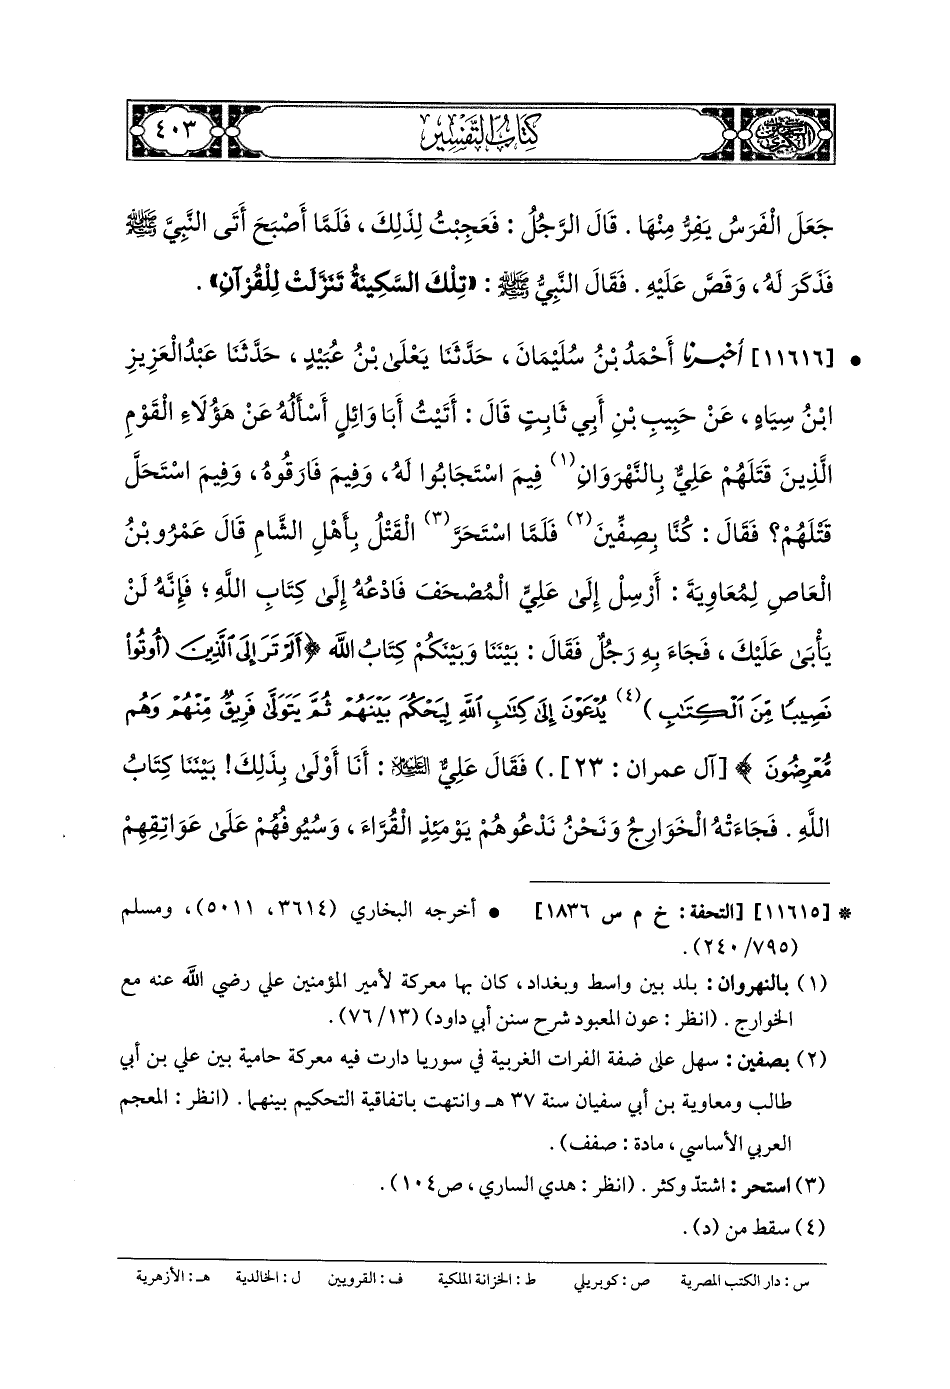 ٤٠٣
كتاب التفسير
جَعَلَ الْفَرَسُ يَفِرُّ مِنْهَا . قَالَ الرَّجُلُ : فَعَجِبْتُ لِذَلِكَ ، فَلَمَّا أَصْبَحَ أَتَى النَّبِيَّ ﷺ
فَذَكَرَ لَهُ ، وَقَصَّ عَلَيْهِ . فَقَالَ النَّبِيُّ ﷺ : «تِلْكَ السَّكِينَةُ تَنَزَّلَتْ لِلْقُرْآنِ» .
• [١١٦١٦] أخبرنا أَحْمَدُ بْنُ سُلَيْمَانَ ، حَدَّثَنَا يَعْلَى بْنُ عُبَيْدٍ ، حَدَّثَنَا عَبْدُالْعَزِيزِ
ابْنُ سِيَاهٍ ، عَنْ حَبِيبِ بْنِ أَبِي ثَابِتٍ قَالَ : أَتَيْتُ أَبَا وَائِلٍ أَسْأَلُهُ عَنْ هَؤُلَاءِ الْقَوْمِ
الَّذِينَ قَتَلَهُمْ عَلِيٌّ بِالنَّهْرَوَانِ(١) فِيمَ اسْتَجَابُوا لَهُ ، وَفِيمَ فَارَقُوهُ ، وَفِيمَ اسْتَحَلَّ
قَتْلَهُمْ؟ فَقَالَ : كُنَّا بِصِفِّينَ(٢) فَلَمَّا اسْتَحَرَّ(٣) الْقَتْلُ بِأَهْلِ الشَّامِ قَالَ عَمْرُو بْنُ
الْعَاصِ لِمُعَاوِيَةَ : أَرْسِلْ إِلَى عَلِيٍّ الْمُصْحَفَ فَادْعُهُ إِلَى كِتَابِ اللَّهِ ؛ فَإِنَّهُ لَنْ
يَأْبَى عَلَيْكَ ، فَجَاءَ بِهِ رَجُلٌ فَقَالَ : بَيْنَنَا وَبَيْنَكُمْ كِتَابُ اللَّه ﴿أَلَمْ تَرَ إِلَى ٱلَّذِينَ (أُوتُواْ
نَصِيبًا مِّنَ ٱلْكِتَٰبِ )(٤) يُدْعَوْنَ إِلَىٰ كِتَٰبِ ٱللَّهِ لِيَحْكُمَ بَيْنَهُمْ ثُمَّ يَتَوَلَّىٰ فَرِيقٌ مِّنْهُمْ وَهُم
مُّعْرِضُونَ ﴾ [آل عمران : ٢٣] .) فَقَالَ عَلِيٌّ عليه السلام : أَنَا أَوْلَى بِذَلِكَ! بَيْنَنَا كِتَابُ
اللَّهِ . فَجَاءَتْهُ الْخَوَارِجُ وَنَحْنُ نَدْعُوهُمْ يَوْمَئِذٍ الْقُرَّاءَ ، وَسُيُوفُهُمْ عَلَى عَوَاتِقِهِمْ
* [١١٦١٥] [التحفة : خ م س ١٨٣٦] • أخرجه البخاري (٣٦١٤، ٥٠١١)، ومسلم
(٢٤٠/٧٩٥).
(١) بالنهروان : بلد بين واسط وبغداد، كان بها معركة لأمير المؤمنين علي رضي الله عنه مع
الخوارج . (انظر : عون المعبود شرح سنن أبي داود) (٧٦/١٣).
(٢) بصفين : سهل على ضفة الفرات الغربية في سوريا دارت فيه معركة حامية بين علي بن أبي
طالب ومعاوية بن أبي سفيان سنة ٣٧ هـ وانتهت باتفاقية التحكيم بينهما . (انظر : المعجم
العربي الأساسي ، مادة : صفف) .
(٣) استحر : اشتدّ وكثر . (انظر : هدي الساري ، ص١٠٤) .
(٤) سقط من (د) .
س : دار الكتب المصرية ص : كوبريلي ط : الخزانة الملكية ف : القرويين ل : الخالدية هـ : الأزهرية